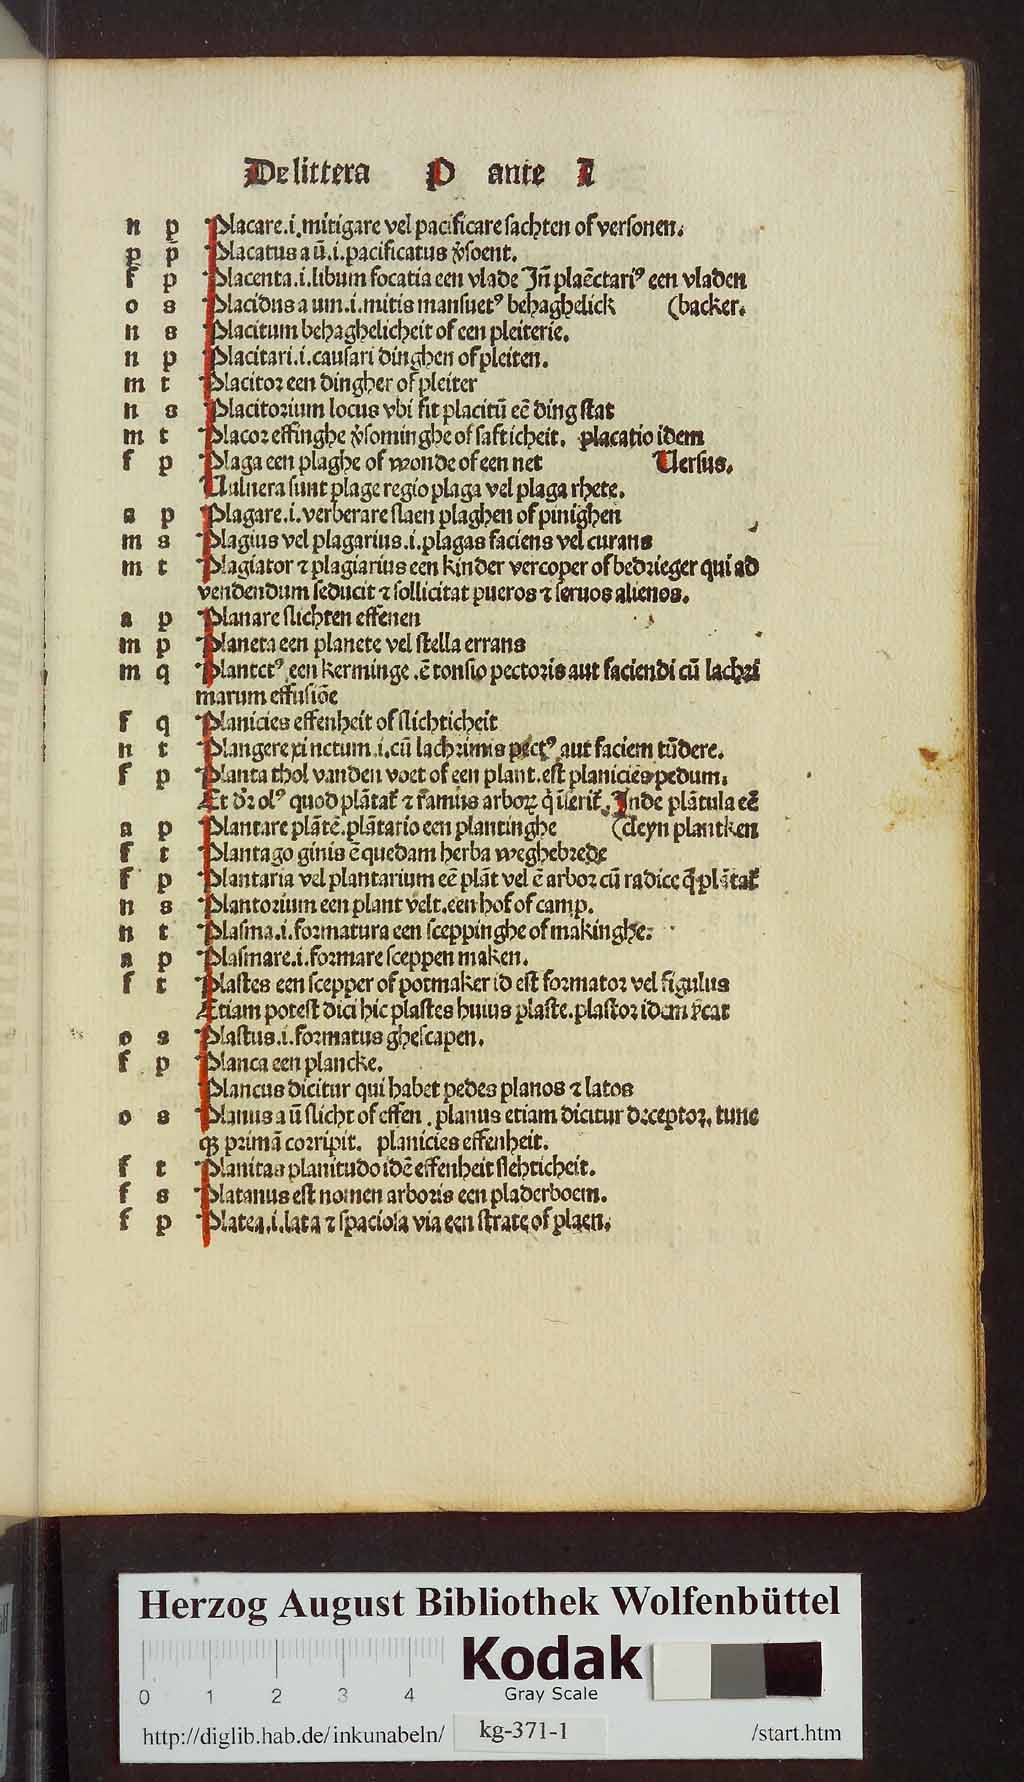 De littera P ante l
n p Placare.i.mitigare vel pacificare sachten of versonen.
p p̄ Placatus a ū.i.pacificatus v̾soent.
f p Placenta.i.libum focatia een vlade Jn̄ plaēctariꝰ een vladen
o s Placidus a um.i.mitis mansuetꝰ behaghelick (backer.
n s Placitum behaghelicheit of een pleiterie.
n p Placitari.i.causari dinghen of pleiten.
m t Placitor een dingher of pleiter
n s Placitorium locus vbi fit placitū eē ding stat
m t Placor effinghe v̾sominghe of safticheit. placatio idem
f p Plaga een plaghe of wonde of een net Versus.
Vulnera sunt plage regio plaga vel plaga rhete.
a p Plagare.i.verberare slaen plaghen of pinighen
m s Plagius vel plagarius.i.plagas faciens vel curans
m t Plagiator ⁊ plagiarius een kinder vercoper of bedrieger qui ad
vendendum seducit ⁊ sollicitat pueros ⁊ seruos alienos.
a p Planare slichten effenen
m p Planeta een planete vel stella errans
m q Planctꝰ een kerminge.ē tonsio pectoris aut faciendi cū lachri
marum effusiōe
f q Planicies effenheit of slichticheit
n t Plangere xi nctum.i.cū lachrimis pectꝰ aut faciem tūdere.
f p Planta thol vanden voet of een plant.est planicies pedum.
Et dr̄ olꝰ quod plātat᷑ ⁊ ramus arboꝝ q̇ īserit᷑. Jnde plātula eē
a p Plantare plātē.plātario een plantinghe (cleyn plantken
f t Plantago ginis ē quedam herba weghebrede
f p Plantaria vel plantarium eē plāt vel ē arbor cū radice q̄ plātat᷑
n s Plantorium een plant velt.een hof of camp.
n t Plasma.i.formatura een sceppinghe of makinghe.
a p Plasmare.i.formare sceppen maken.
f t Plastes een scepper of potmaker id est formator vel figulus
Etiam potest dici hic plastes huius plaste.plastor idem
o s Plastus.i.formatus ghescapen.
f p Planca een plancke.
Plancus dicitur qui habet pedes planos ⁊ latos
o s Planus a ū slicht of effen. planus etiam dicitur deceptor, tunc
primā corripit. planicies effenheit.
f t Planitas planitudo idē effenheit slehticheit.
f s Platanus est nomen arboris een pladerboem.
f p Platea.i.lata ⁊ spaciosa via een strate of plaen.
Herzog August Bibliothek Wolfenbüttel
Kodak
Gray Scale
0 1 2 3 4
http://diglib.hab.de/inkunabeln/ kg-371-1 /start.htm